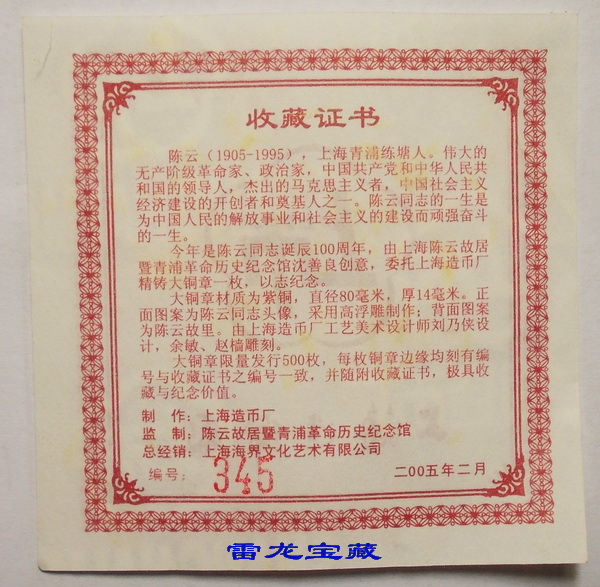 收藏证书
陈云（1905-1995），上海青浦练塘人。伟大的
无产阶级革命家、政治家，中国共产党和中华人民共
和国的领导人，杰出的马克思主义者，中国社会主义
经济建设的开创者和奠基人之一。陈云同志的一生是
为中国人民的解放事业和社会主义的建设而顽强奋斗
的一生。
今年是陈云同志诞辰100周年，由上海陈云故居
暨青浦革命历史纪念馆沈善良创意，委托上海造币厂
精铸大铜章一枚，以志纪念。
大铜章材质为紫铜，直径80毫米，厚14毫米。正
面图案为陈云同志头像，采用高浮雕制作；背面图案
为陈云故里。由上海造币厂工艺美术设计师刘乃侠设
计，余敏、赵樯雕刻。
大铜章限量发行500枚，每枚铜章边缘均刻有编
号与收藏证书之编号一致，并随附收藏证书，极具收
藏与纪念价值。
制 作：上海造币厂
监 制：陈云故居暨青浦革命历史纪念馆
总经销：上海海界文化艺术有限公司
编号：345 二00五年二月
雷龙宝藏